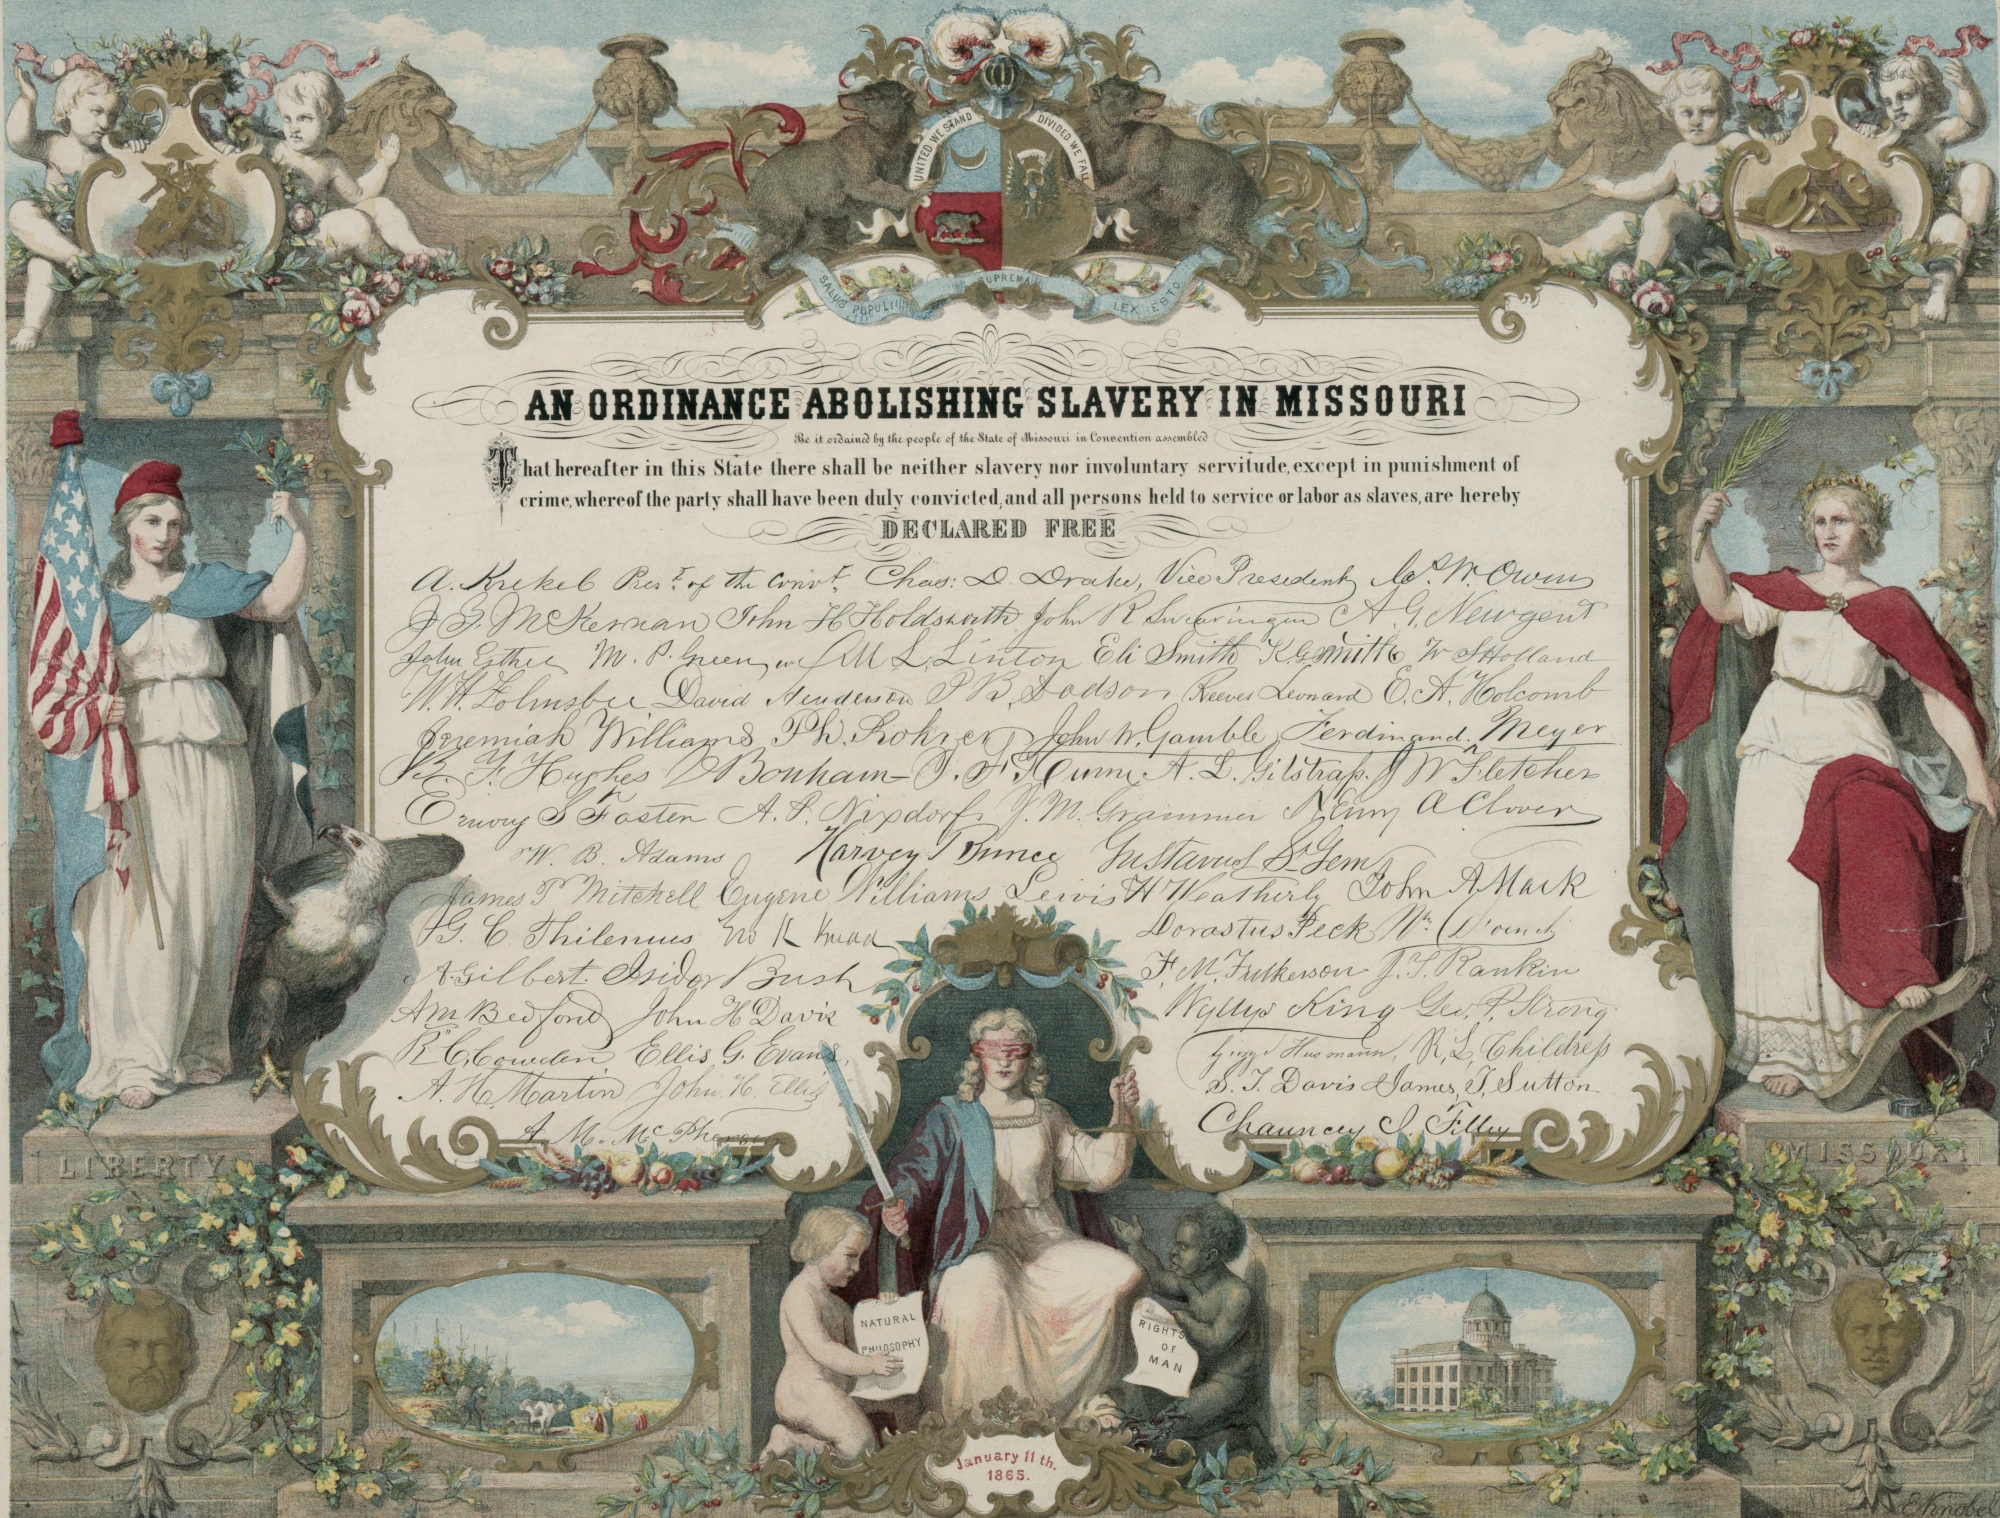 UNITED WE STAND DIVIDED WE FALL
SALUS POPULI SUPREMA LEX ESTO
AN ORDINANCE ABOLISHING SLAVERY IN MISSOURI
Be it ordained by the people of the State of Missouri in Convention assembled
That hereafter in this State there shall be neither slavery nor involuntary servitude, except in punishment of
crime, whereof the party shall have been duly convicted, and all persons held to service or labor as slaves, are hereby
DECLARED FREE
A. Krekel Prest. of the Convt. Chas: D. Drake, Vice President W. Owens
J F. McKernan John H Holdsworth John R Swearingen A. G. Newgent
John Esther M. P. Green M L, Linton Eli Smith K G Smith W S Holland
David Henderson P B, Dodson Reeves Leonard E. A. Holcomb
Jeremiah Williams Ph. Rohrer John W. Gamble Ferdinand Meyer
B. F. Hughes D Bonham J. F. Hume A. L. Gilstrap. J W Fletcher
Emory S Foster A. P. Nixdorf J. M. Grammer Henry A Clover
W. B. Adams Harvey Bunce Gustavus St Gem
James P Mitchell Eugene Williams Lewis H Weatherly John A Mack
G. C Thilenius Dorastus Peck
A Gilbert. Isidor Bush F. M. Fulkerson J. T. Rankin
A M Bedford John H Davis Wyllys King Geo. P. Strong
R C, Cowden Ellis G. Evans, Husmann, R, L, Childress
A. H. Martin John. H. Ellis S. T. Davis James, T, Sutton
A M. McPherson Chauncey I. Filley
LIBERTY MISSOURI
NATURAL
PHILOSOPHY
RIGHTS
OF
MAN
January 11th.
1865.
E. Knobel